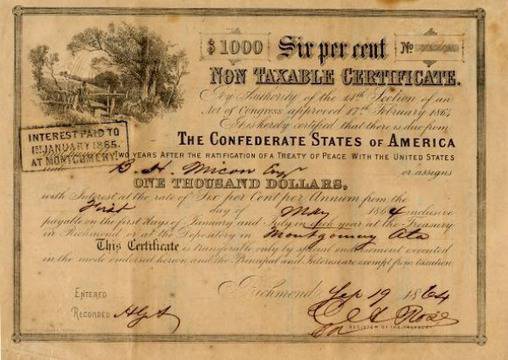 $1000 Six per cent No
NON TAXABLE CERTIFICATE.
By Authority of the 14th Section of an
Act of Congress approved 17th February 1864
It is hereby certified that there is due from
THE CONFEDERATE STATES OF AMERICA
INTEREST PAID TO
1ST JANUARY 1865.
AT MONTGOMERY.
TWO YEARS AFTER THE RATIFICATION OF A TREATY OF PEACE WITH THE UNITED STATES
unto B. H. Micou Esqr or assigns
ONE THOUSAND DOLLARS,
with Interest at the rate of Six per Cent per Annum from the
First day of May 1864 inclusive
payable on the first days of January and July in each year at the Treasury
in Richmond or at the Depositary in Montgomery Ala
This Certificate is transferable only by special indorsement executed
in the mode endorsed hereon and the Principal and Interest are exempt from taxation
Richmond Sep 19 1864
ENTERED
RECORDED
REGISTER OF THE TREASURY